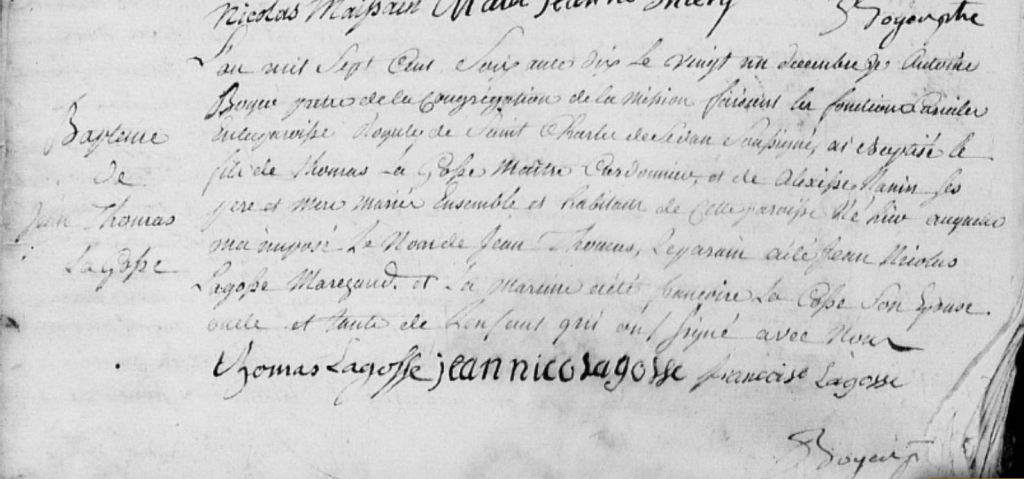 Nicolas Marie Jeanne
Boyer ptre
L'an mil Sept Cent Soixante dix le vingt un decembre je Antoine
Boyer pretre de la Congrégation de la Mission faisant les fonctions Curiales
En la paroisse Royale de Saint Charles de Sedan Soussigné, ai Baptisé le
fils de Thomas La Gosse Maître Cordonnier, et de Alexisse Nanin ses
pere et mere mariés Ensemble et habitans de Cette paroisse Né hier auquel
on a imposé Le Nom de Jean Thomas, Le parain a été Jean Nicolas
Lagosse Marchand. et La maraine a été françoise La Gosse Son Epouse.
oncle et tante de L'enfant qui ont Signé avec Nous
Bapteme
de
Jean Thomas
La Gosse
thomas Lagosse jean nico lagosse francoise Lagosse
Boyer p